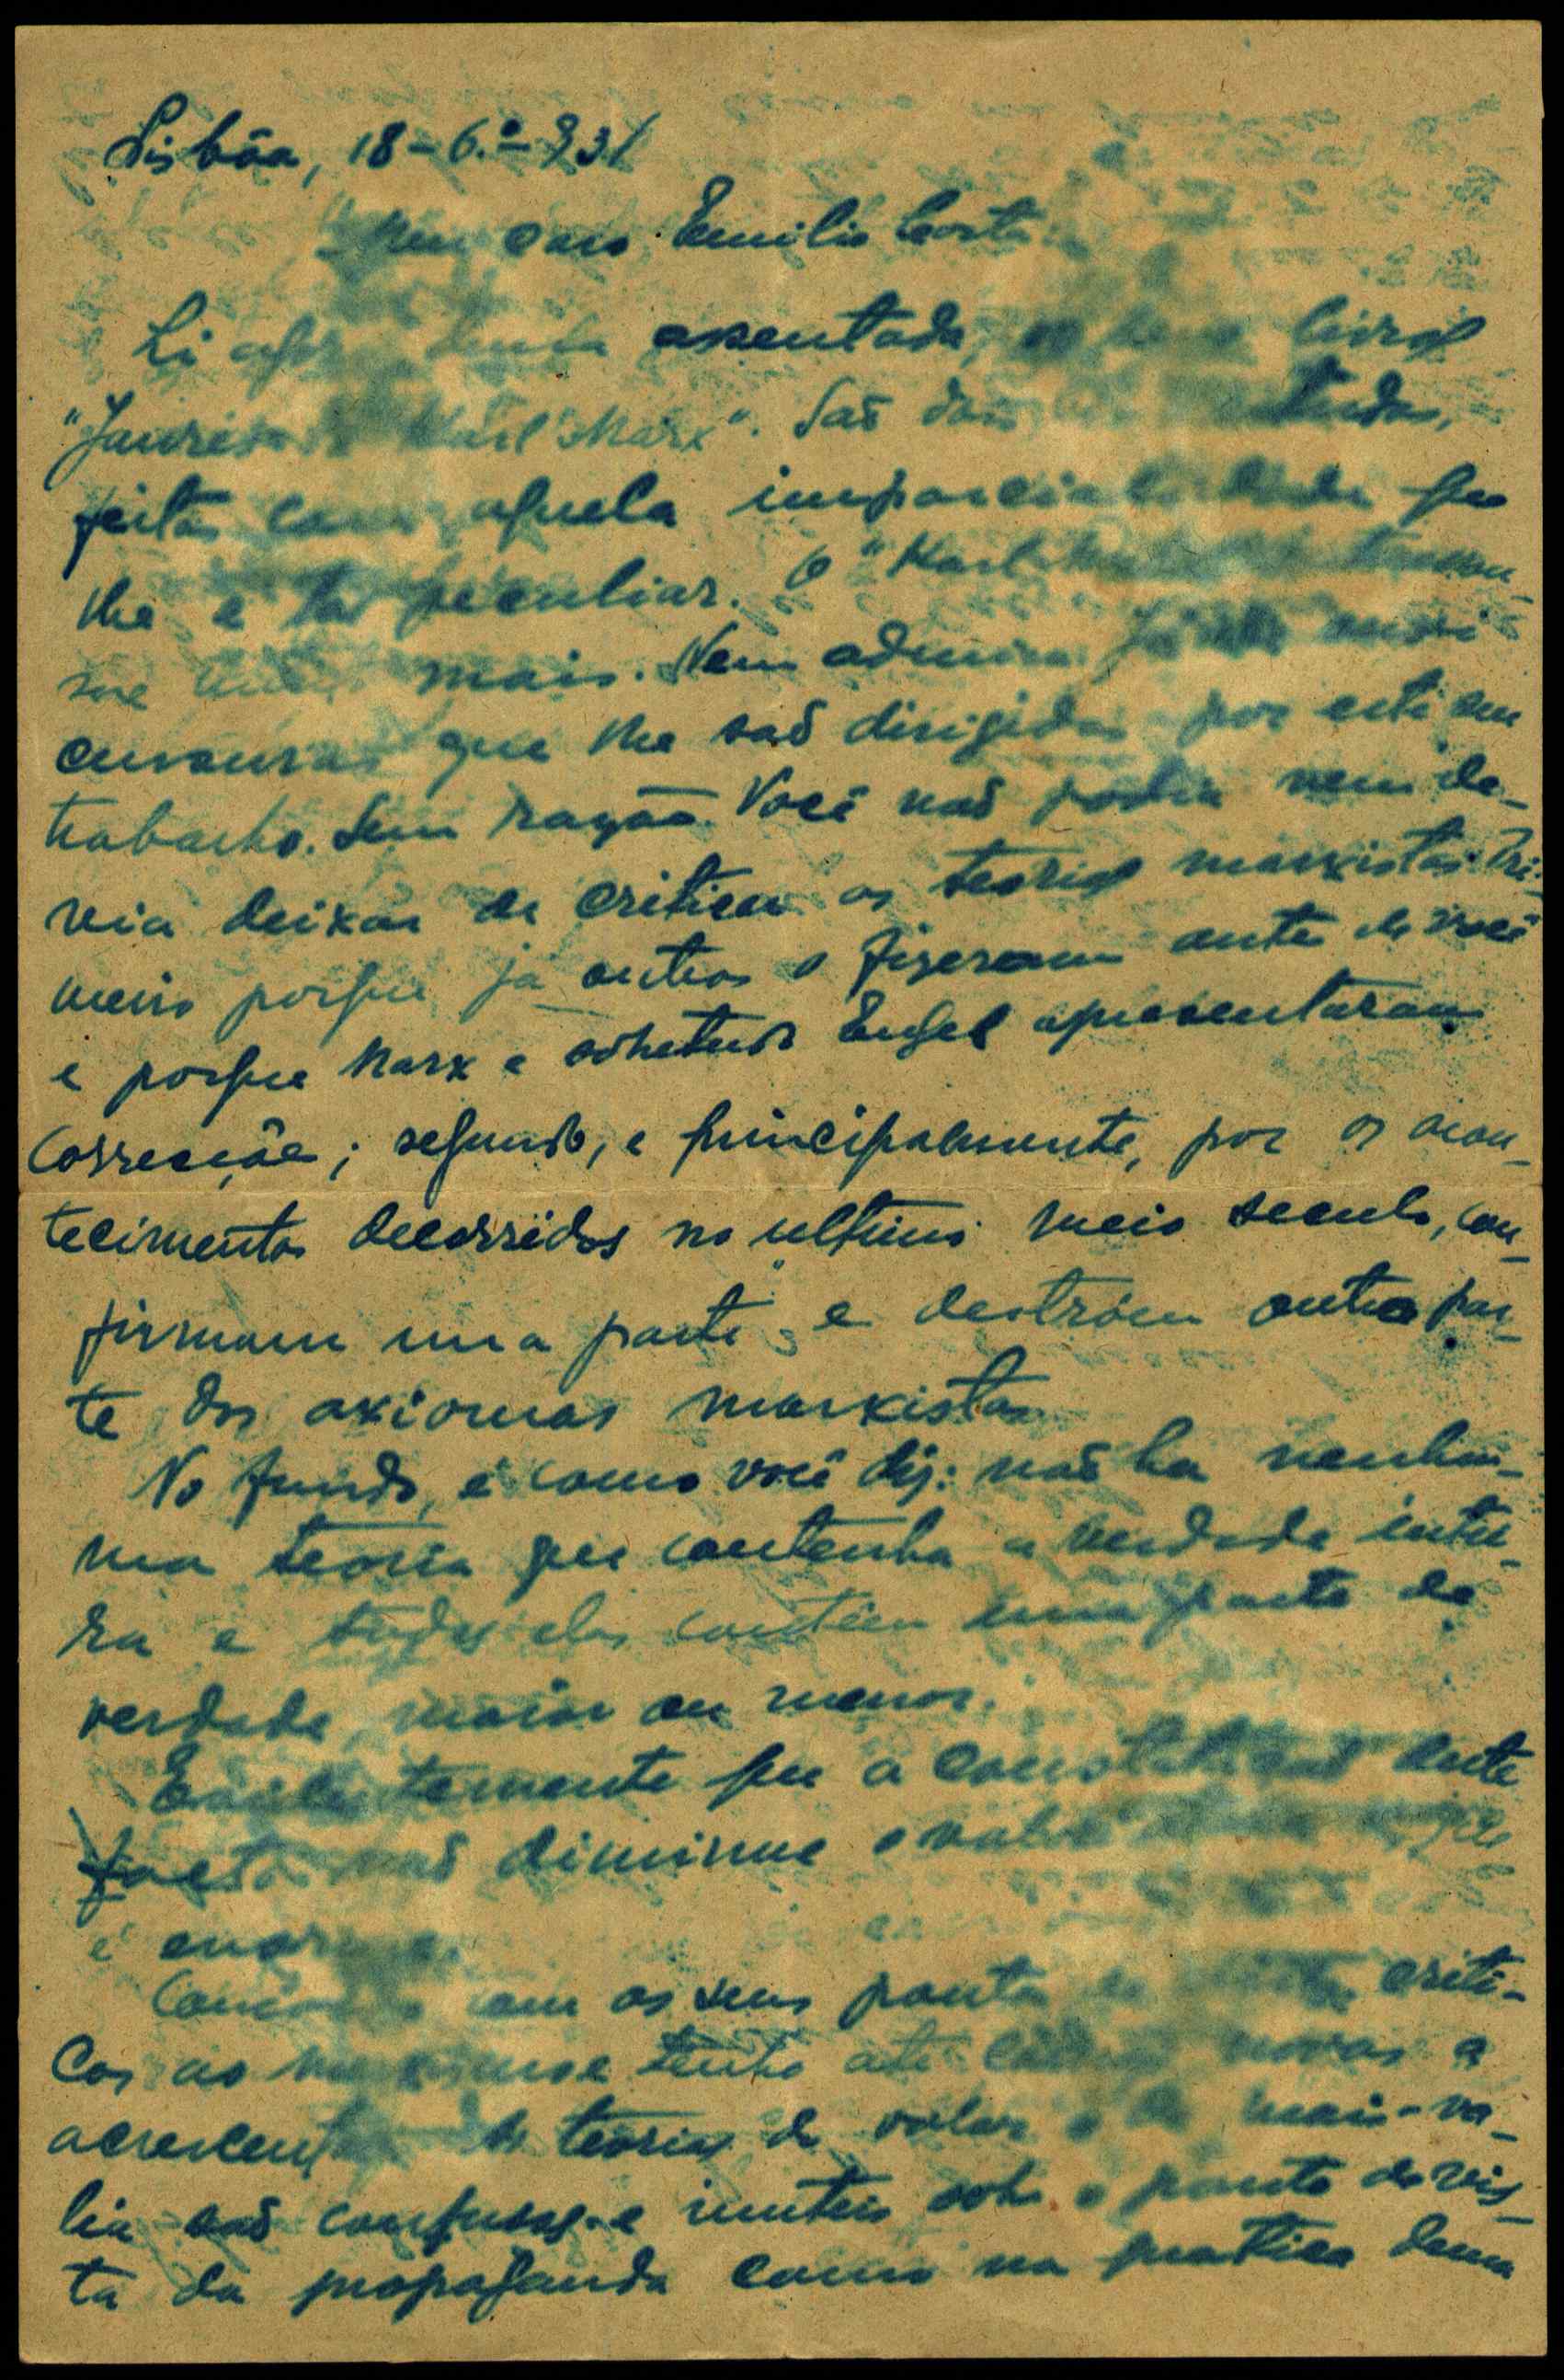 Lisbôa, 18-6.º-931
Meu caro Emilio Costa
Li assentada, livros
"Jaurés Karl Marx". Saõ
feitos com aquela imparcialidade que
lhe é taõ peculiar. O "Karl
me mais. Nem admira. Já
censuras que lhe saõ dirigidas por este seu
trabalho. Sem razaõ. Você naõ podia nem de-
via deixar de criticar as teorias marxistas. Pri-
meiro porque já outros o fizeram antes de você
e porque Marx e sobretudo Engels apresentaram
correcções; segundo, e principalmente, por os acon-
tecimentos decorridos no ultimo meio seculo, con-
firmam uma parte e destróem outra par-
te dos axiomas marxistas.
No fundo, é como você diz: naõ ha nenhu-
ma teoria que contenha a verdade intei-
ra e todas elas contém uma parte de
verdade, maior ou menor.
Evidentemente que a constataçaõ deste
facto naõ diminue o valor
é enorme.
com os seus pontos de vista criti-
cos ao marxismo e tenho até novas a
acrescentar. As teorias do valor e da mais-va-
lia saõ confusas e inuteis sob o ponto de vis-
ta da propaganda como na pratica duma